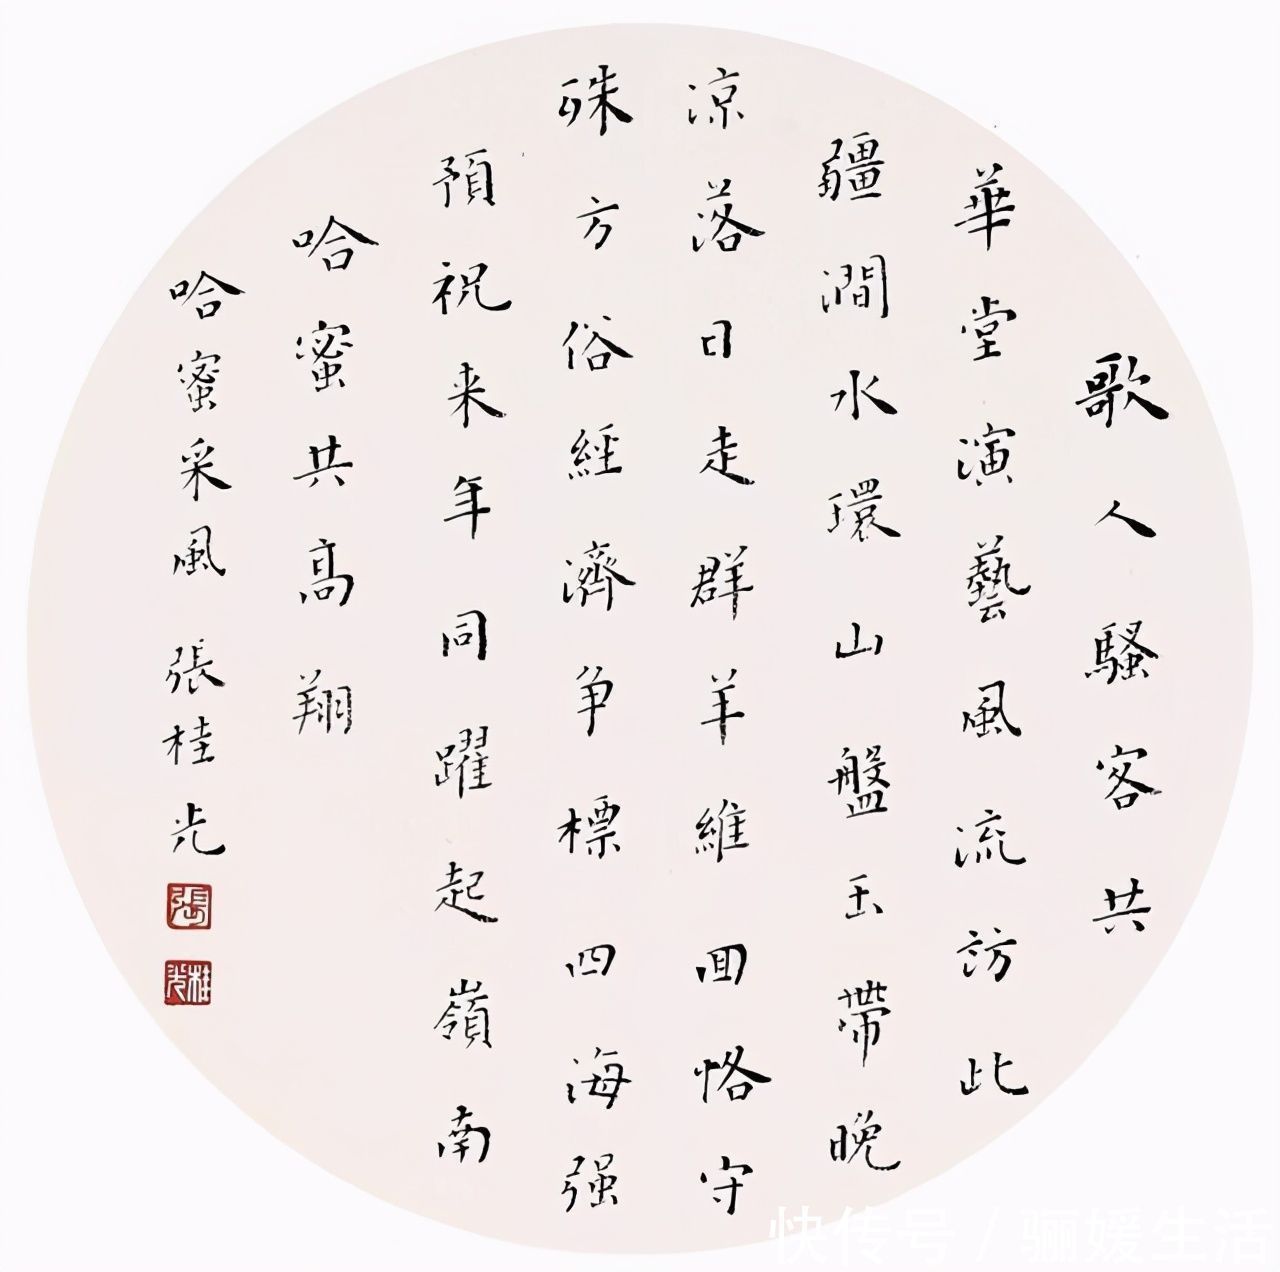 歌人騷客共
華堂演藝風流訪此
疆澗水環山盤玉帶晚
凉落日走群羊維回恪守
殊方俗經濟争標四海强
預祝来年同躍起嶺南
哈蜜共高翔
哈蜜采風 張桂光
張
桂光
快传号 / 骊媛生活